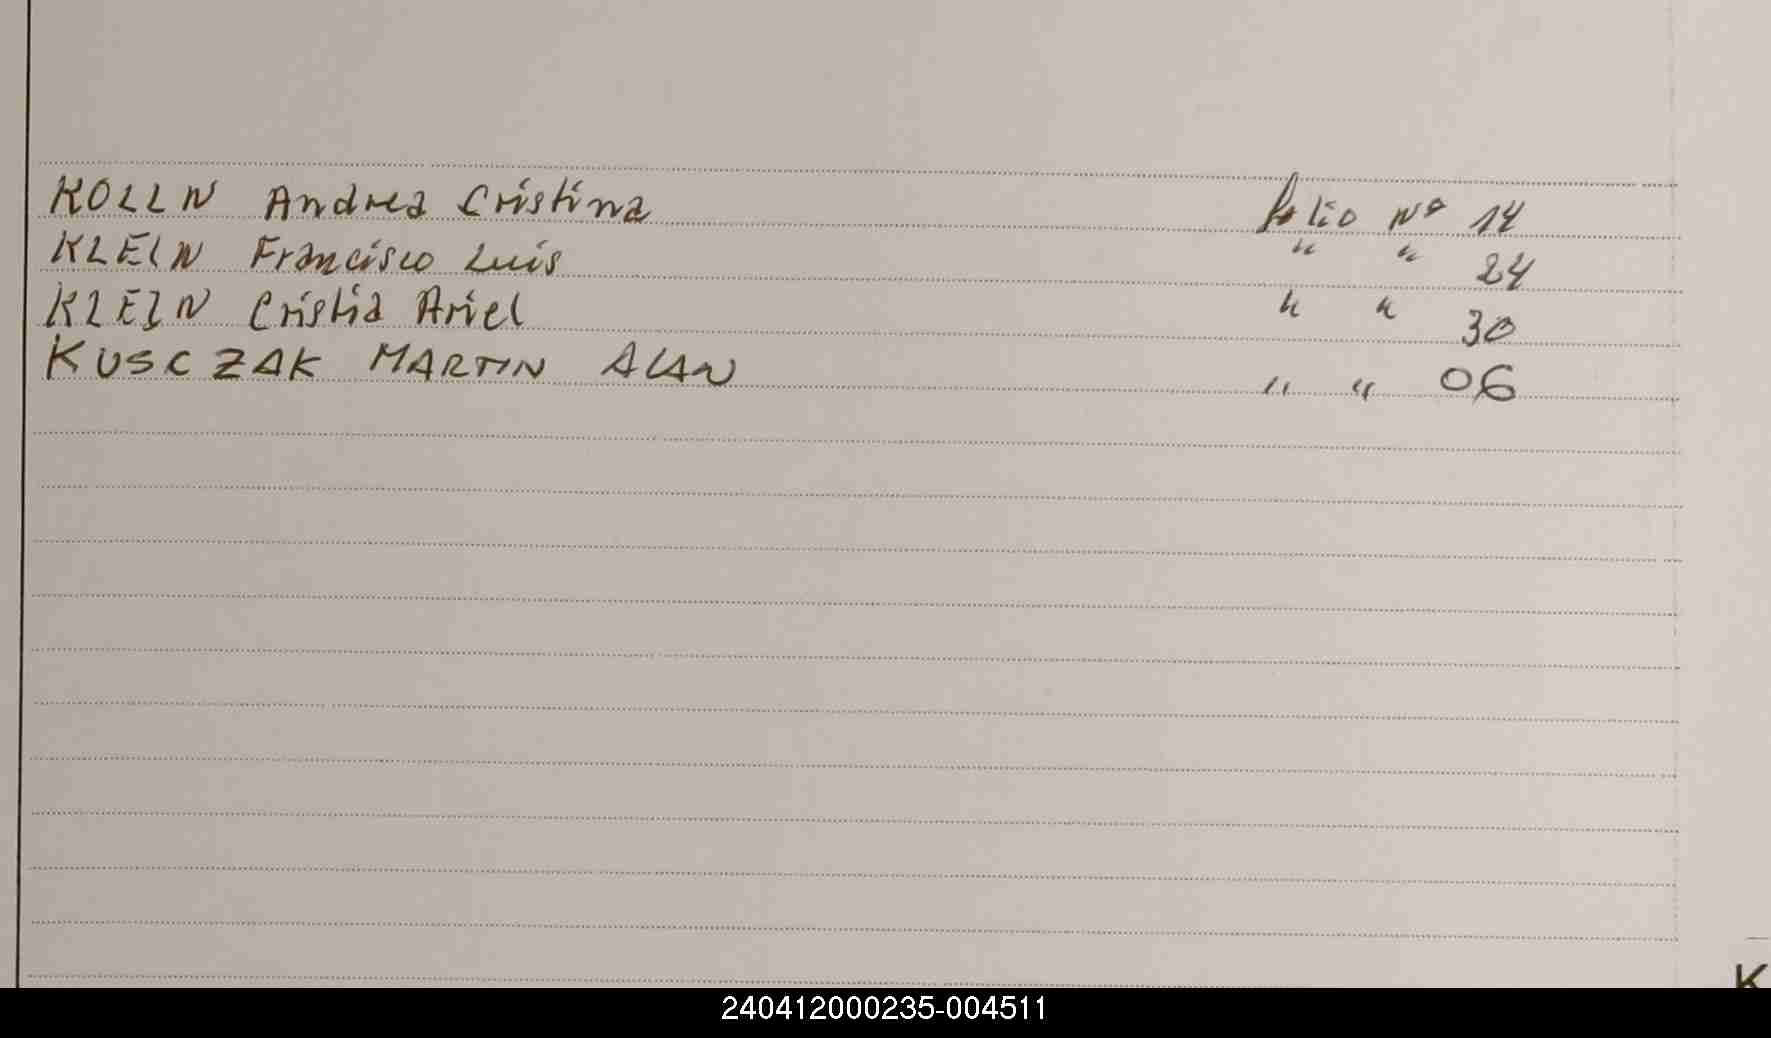 KOLLN Andrea Cristina folio Nº 14
KLEIN Francisco Luis " " 24
KLEIN Cristia Ariel " " 30
KUSCZAK MARTIN ALAN " " 06
K
240412000235-004511